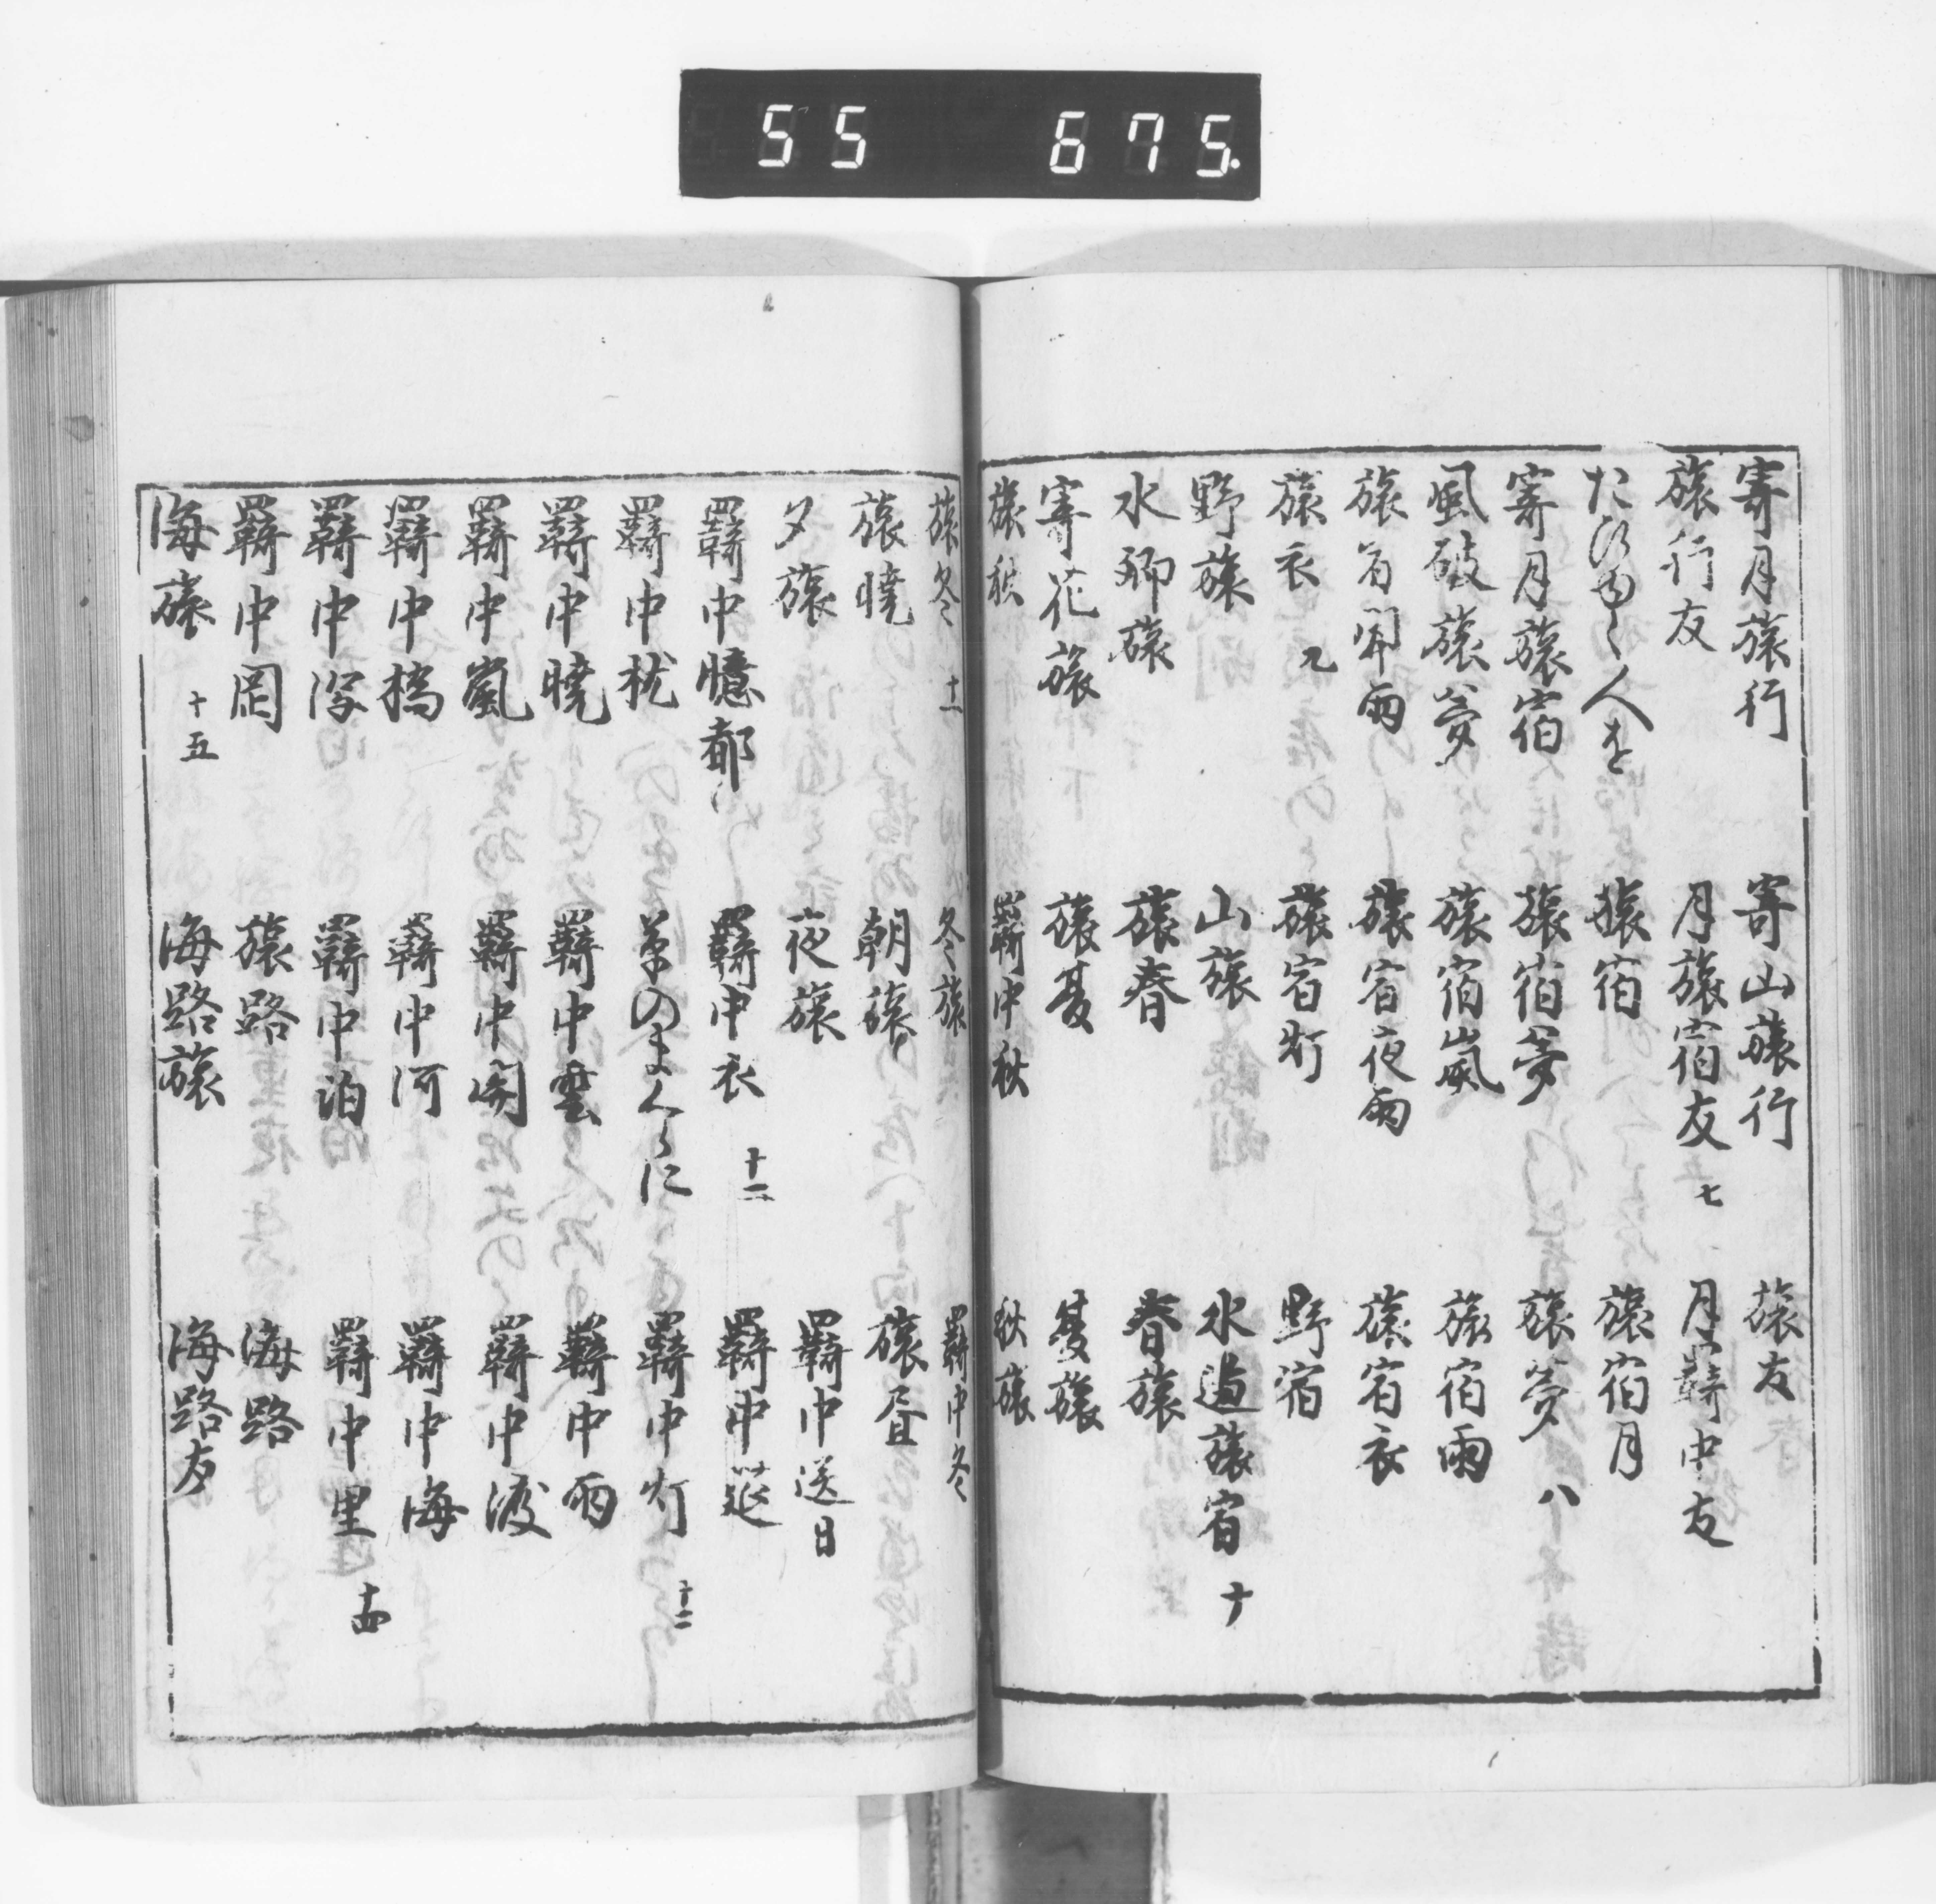 55 675.
寄月旅行 寄山旅行 旅友
旅行友 月旅宿友 七 月羇中友
人を 旅宿 旅宿月
寄月旅宿 旅宿夢 旅夢 八
風破旅夢 旅宿嵐 旅宿雨
旅宿聞雨 旅宿夜雨 旅宿衣
旅衣 九 旅宿灯 野宿
野旅 山旅 水辺旅宿 十
水郷旅 旅春 春旅
寄花旅 旅夏 夏旅
旅秋 羇中秋 秋旅
旅冬 十一 冬旅 羇中冬
旅暁 朝旅 旅昼
夕旅 夜旅 羇中送日
羇中憶都 羇中衣 十二 羇中莚
羇中枕 草のまくらに 羇中灯 十三
羇中暁 羇中雲 羇中雨
羇中嵐 羇中関 羇中渡
羇中橋 羇中河 羇中海
羇中浮 羇中泊 羇中里 十四
羇中岡 旅路 海路
海旅 十五 海路旅 海路友